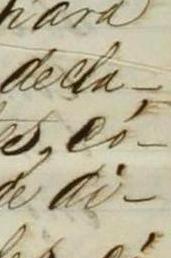 para
decla-
es, có-
de di-